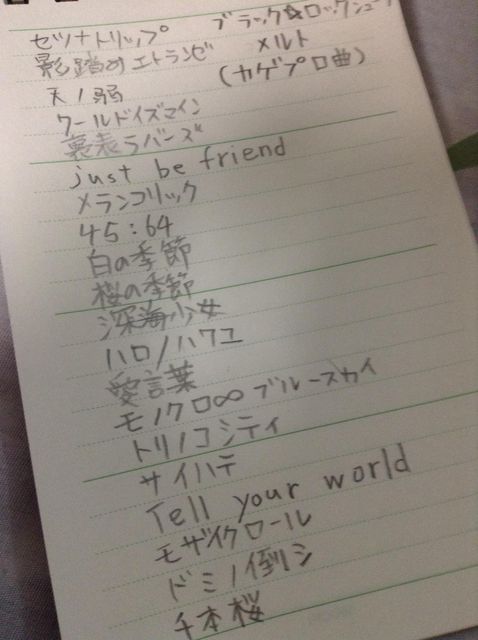 セツナトリップ ブラック☆ロックシュー
影踏みエトランゼ メルト
天ノ弱 (カゲプロ曲)
ワールドイズマイン
裏表ラバーズ
just be friend
メランコリック
45:64
白の季節
桜の季節
深海少女
ハロ/ハワユ
愛言葉
モノクロ∞ブルースカイ
トリノコシティ
サイハテ
Tell your world
モザイクロール
ドミノ倒シ
千本桜